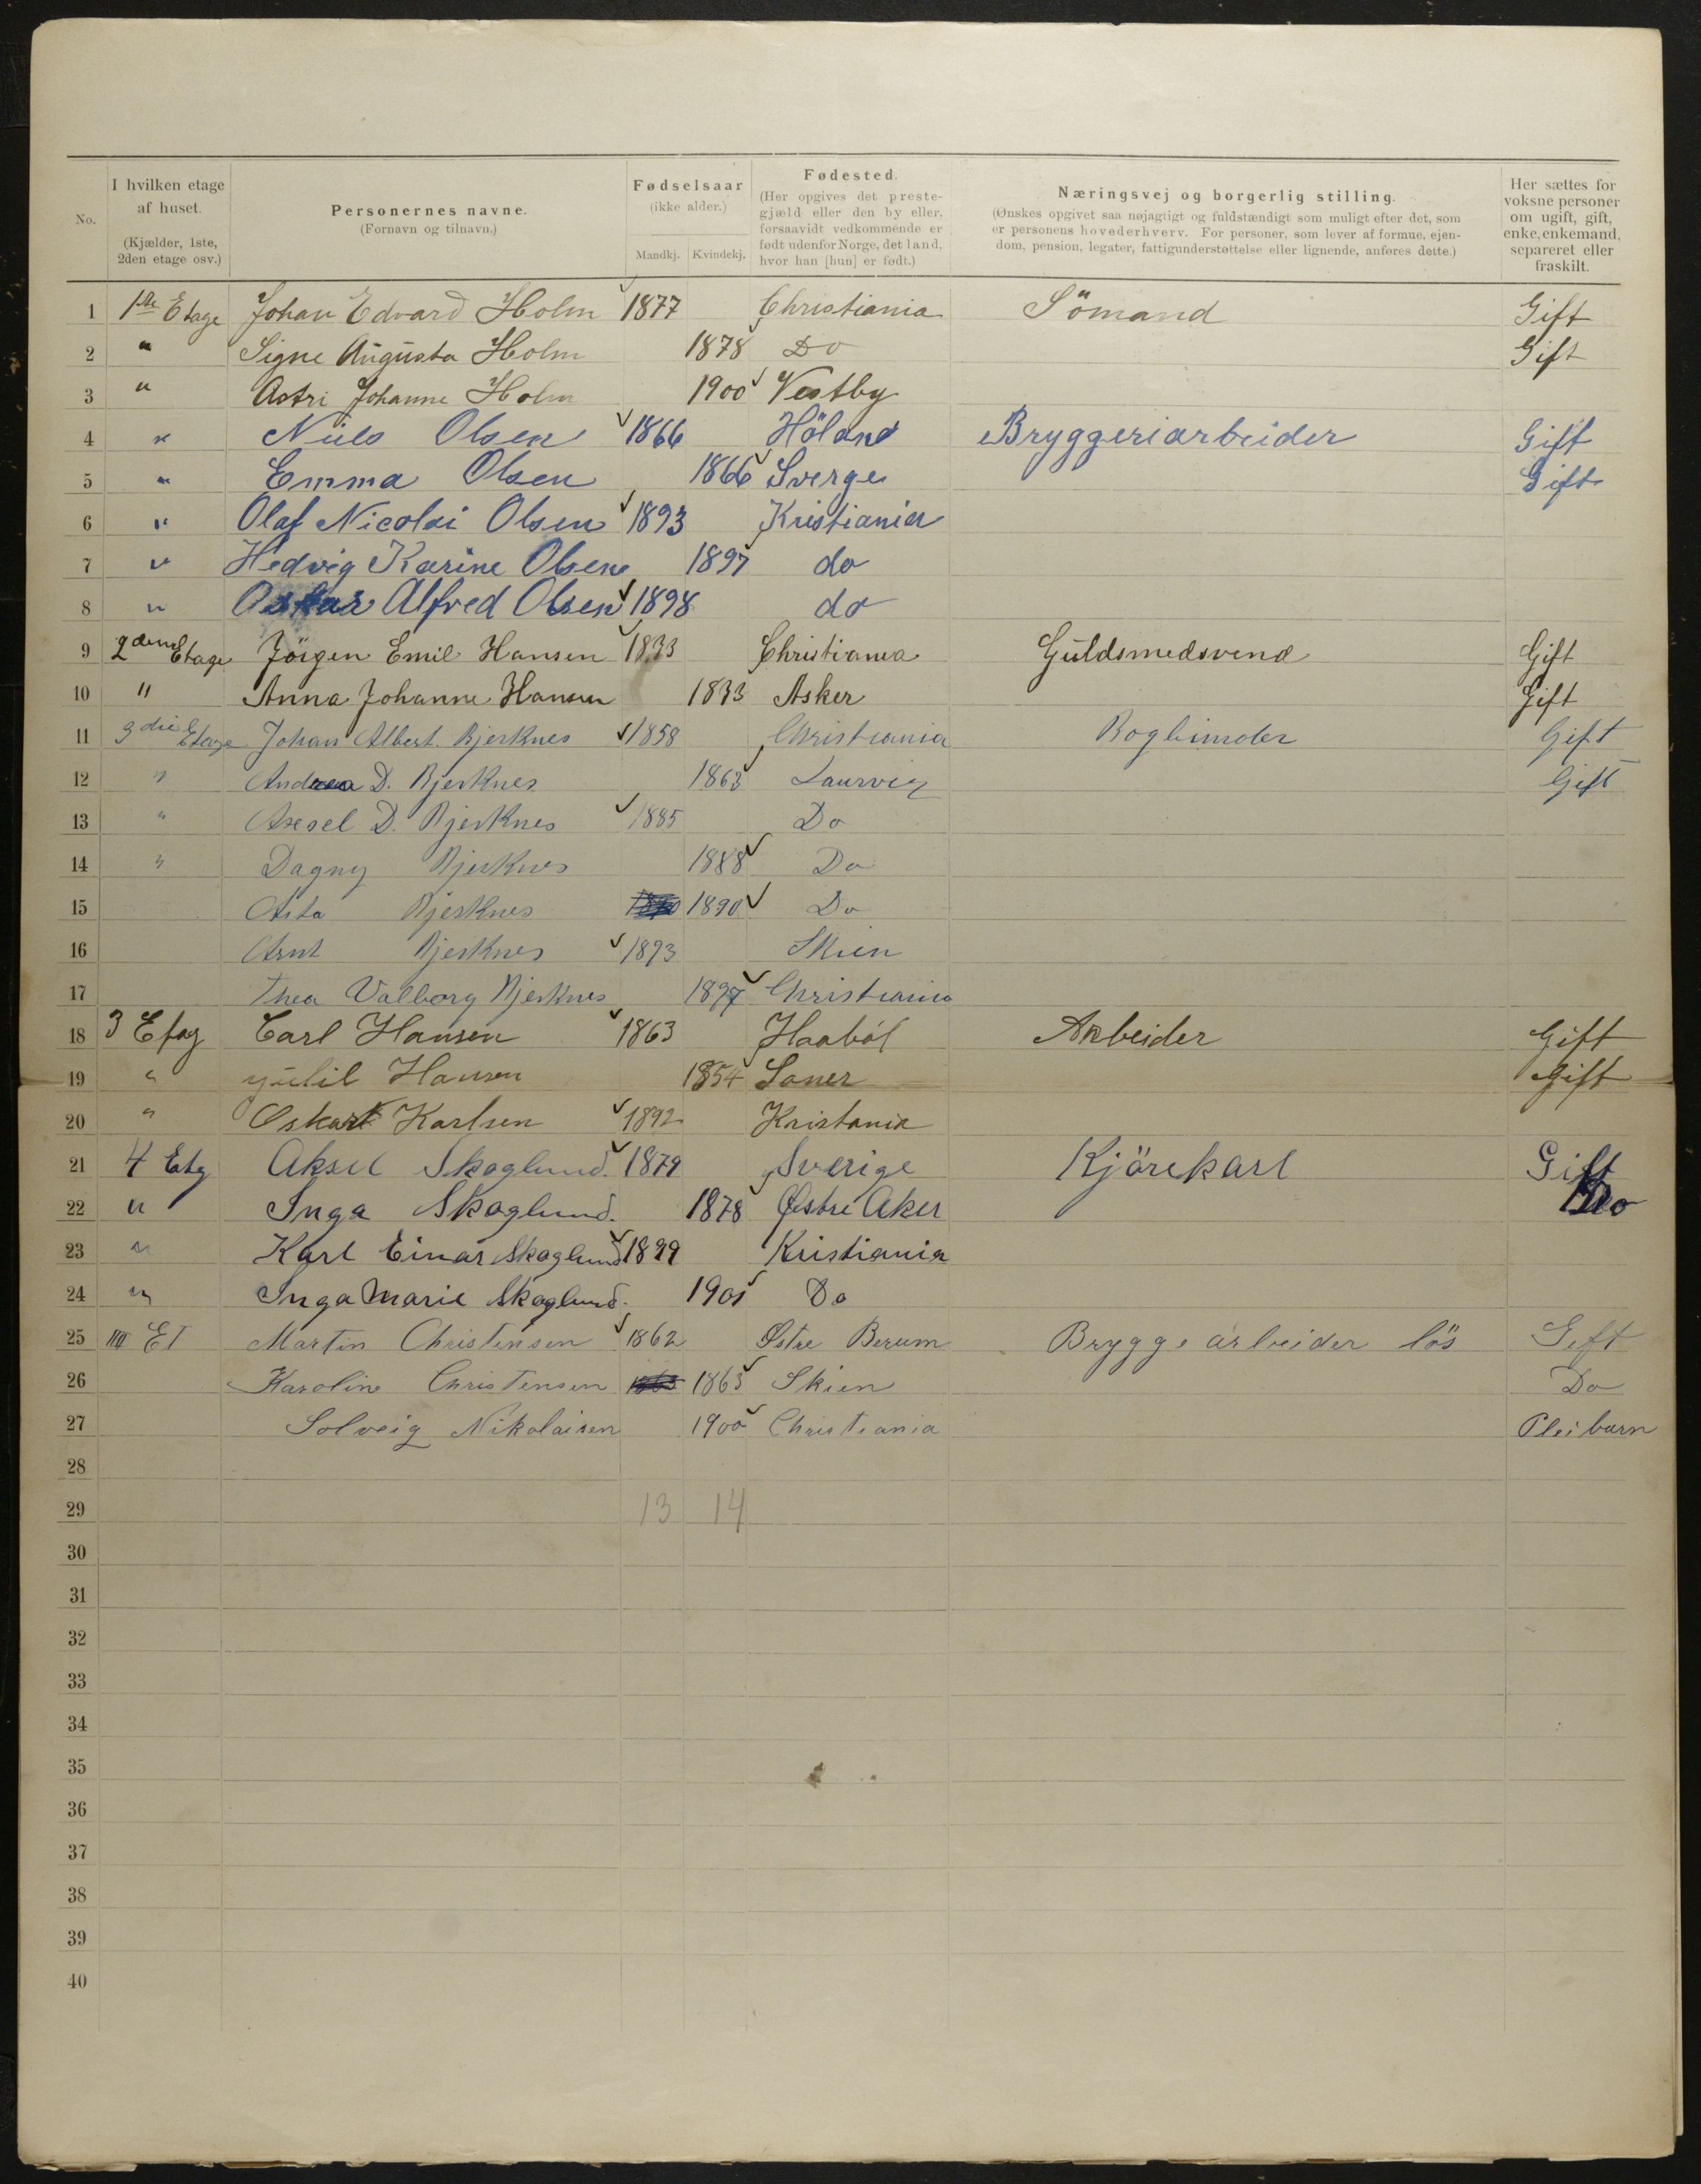 No. I hvilken etage af huset. (Kjælder, 1ste, 2den etage osv.) Personernes navne. (Fornavn og tilnavn.) Fødselsaar (ikke alder.) Mandkj. Kvindekj. Fødested. (Her opgives det prestegjæld eller den by eller, forsaavidt vedkommende er født udenfor Norge, det land, hvor han [hun] er født.) Næringsvej og borgerlig stilling. (Ønskes opgivet saa nøjagtigt og fuldstændigt som muligt efter det, som er personens hovederhverv. For personer, som lever af formue, ejendom, pension, legater, fattigunderstøttelse eller lignende, anføres dette.) Her sættes for voksne personer om ugift, gift, enke, enkemand, separeret eller fraskilt.
1 1ste Etage Johan Edvard Holm 1877 Christiania Sömand Gift
2 " Signe Augusta Holm 1878 Do Gift
3 " Astri Johanne Holm 1900 Vestby
4 " Niels Olsen 1866 Höland Bryggeriarbeider Gift
5 " Emma Olsen 1866 Sverge Gift
6 " Olaf Nicolai Olsen 1893 Kristiania
7 " Hedvig Karine Olsen 1897 do
8 " Oskar Alfred Olsen 1898 do
9 2den Etage Jörgen Emil Hansen 1833 Christiania Guldsmedsvend Gift
10 " Anna Johanne Hansen 1833 Asker Gift
11 3die Etage Johan Albert Bjerknes 1858 Christiania Bogbinder Gift
12 " Andrea D. Bjerknes 1863 Laurvig Gift
13 " Axsel D. Bjerknes 1885 Do
14 " Dagny Bjerknes 1888 Do
15 Asta Bjerknes 1890 Do
16 Arnt Bjerknes 1893 Skien
17 Thea Valborg Bjerknes 1897 Christiania
18 3 Etag Carl Hansen 1863 Haaböl Arbeider Gift
19 " Hansen 1854 Saner Gift
20 " Oskar Karlsen 1892 Kristania
21 4 Etg Aksel Skoglund. 1879 Sverige Kjörekarl Gift
22 " Inga Skoglund. 1878 Østre Aker Do
23 " Karl Einar Skoglund 1899 Kristiania
24 " Inga Marie Skoglund. 1901 Do
25 IIII ET Martin Christensen 1862 Østre Berum Bryggearbeider lös Gift
26 Karoline Christensen 1863 Skien Do
27 Solveig Nikolaisen 1900 Christiania Pleibarn
28
29 13 14
30
31
32
33
34
35
36
37
38
39
40